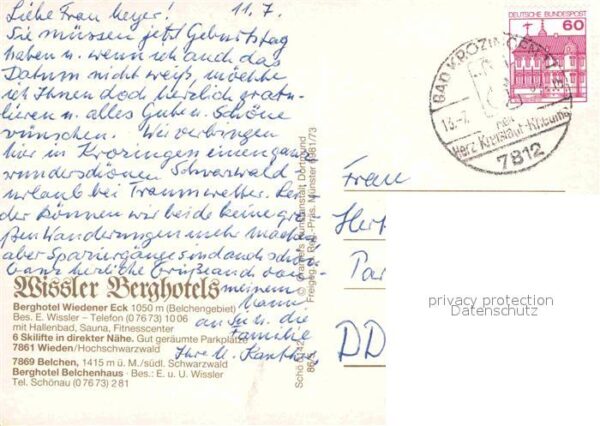 Liebe Frau Meyer! 11.7.
Sie müssen jetzt Geburtstag
haben u. wenn ich auch das
Datum nicht weiß, möchte
ich Ihnen doch herzlich gratu-
lieren u. alles Gute u. Schöne
wünschen. Wir verbringen
hier in Krozingen einen ganz
wunderschönen Schwarzwald-
urlaub bei Traumwetter. Lei-
der können wir beide keine gro-
ßen Wanderungen mehr machen
aber Spaziergänge sind auch schön
Ganz herzliche Grüße auch von
meinem
Mann
an Sie u. die
Familie
Ihre
DEUTSCHE BUNDESPOST
60
BAD KROZINGEN
13.-7.
Herz-Kreislauf-
7812
Frau
Her
Par
DD
privacy protection
Datenschutz
© Cramers Kunstanstalt Dortmund
Freigeg. d. Reg.-Präs. Münster 6981/73
Wissler Berghotels
Berghotel Wiedener Eck 1050 m (Belchengebiet)
Bes. E. Wissler – Telefon (0 76 73) 10 06
mit Hallenbad, Sauna, Fitnesscenter
6 Skilifte in direkter Nähe. Gut geräumte Parkplätze
7861 Wieden/Hochschwarzwald
7869 Belchen, 1415 m ü.M./südl. Schwarzwald
Berghotel Belchenhaus · Bes.: E. u. U. Wissler
Tel. Schönau (0 76 73) 2 81